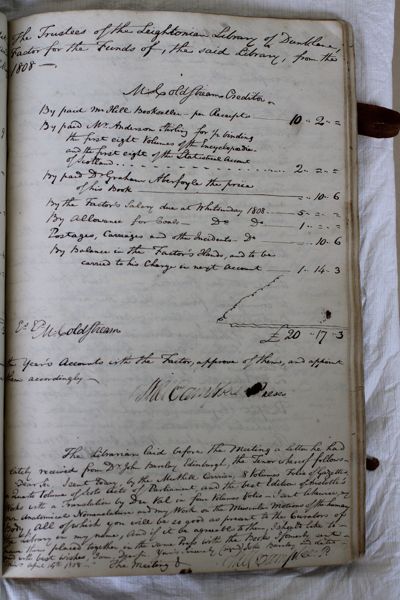 The Trustees of the Leightonian Library of Dunblane,
Factor for the Funds of, the said Library, from the
1808 —
M. Coldstream Creditor
By paid Mr. Hill Bookseller per Receipt 10 .. 2 .. =
By paid Mr. Anderson Stirling for binding
the first eight Volumes of the Encyclopædia
and the first eight of the Statistical Account
of Scotland 2 .. = .. =
By paid Dr. Graham Aberfoyle the price
of his Book = .. 10 .. 6
By the Factor's Salary due at Whitsunday 1808 5 .. = .. =
By Allowance for Coals Do Do 1 .. = .. =
Postages, Carriages and other Incidents Do = .. 10 .. 6
By Balance in the Factor's Hands, and to be
carried to his Charge in next Account 1 .. 14 .. 3
£ 20 .. 17 .. 3
M. Coldstream
Year's Accounts with the Factor, approve of them, and appoint
accordingly —
Preses
The Librarian laid before the Meeting a letter he had
lately received from Dr. John Barclay Edinburgh, the Tenor whereof follows
Dear Sir, I sent today, by the Muthill Carrier, 8 Volumes Folio of Gazettes,
a Quarto Volume of Scots Acts of Parliament and the best Edition of Aristotle's
Works with a Translation by Du Val in four Volumes Folio — I sent likewise my
Anatomical Nomenclature and my Work on the Muscular Motions of the human
Body, All of which you will be so good as present to the Curators of
the Library in my name, And if it be agreeable to them, I should like to
have them placed together in the same Press with the Books I formerly sent
with best wishes I am Dear Sir Yours sincerely John Barclay
April 1808 — The Meeting